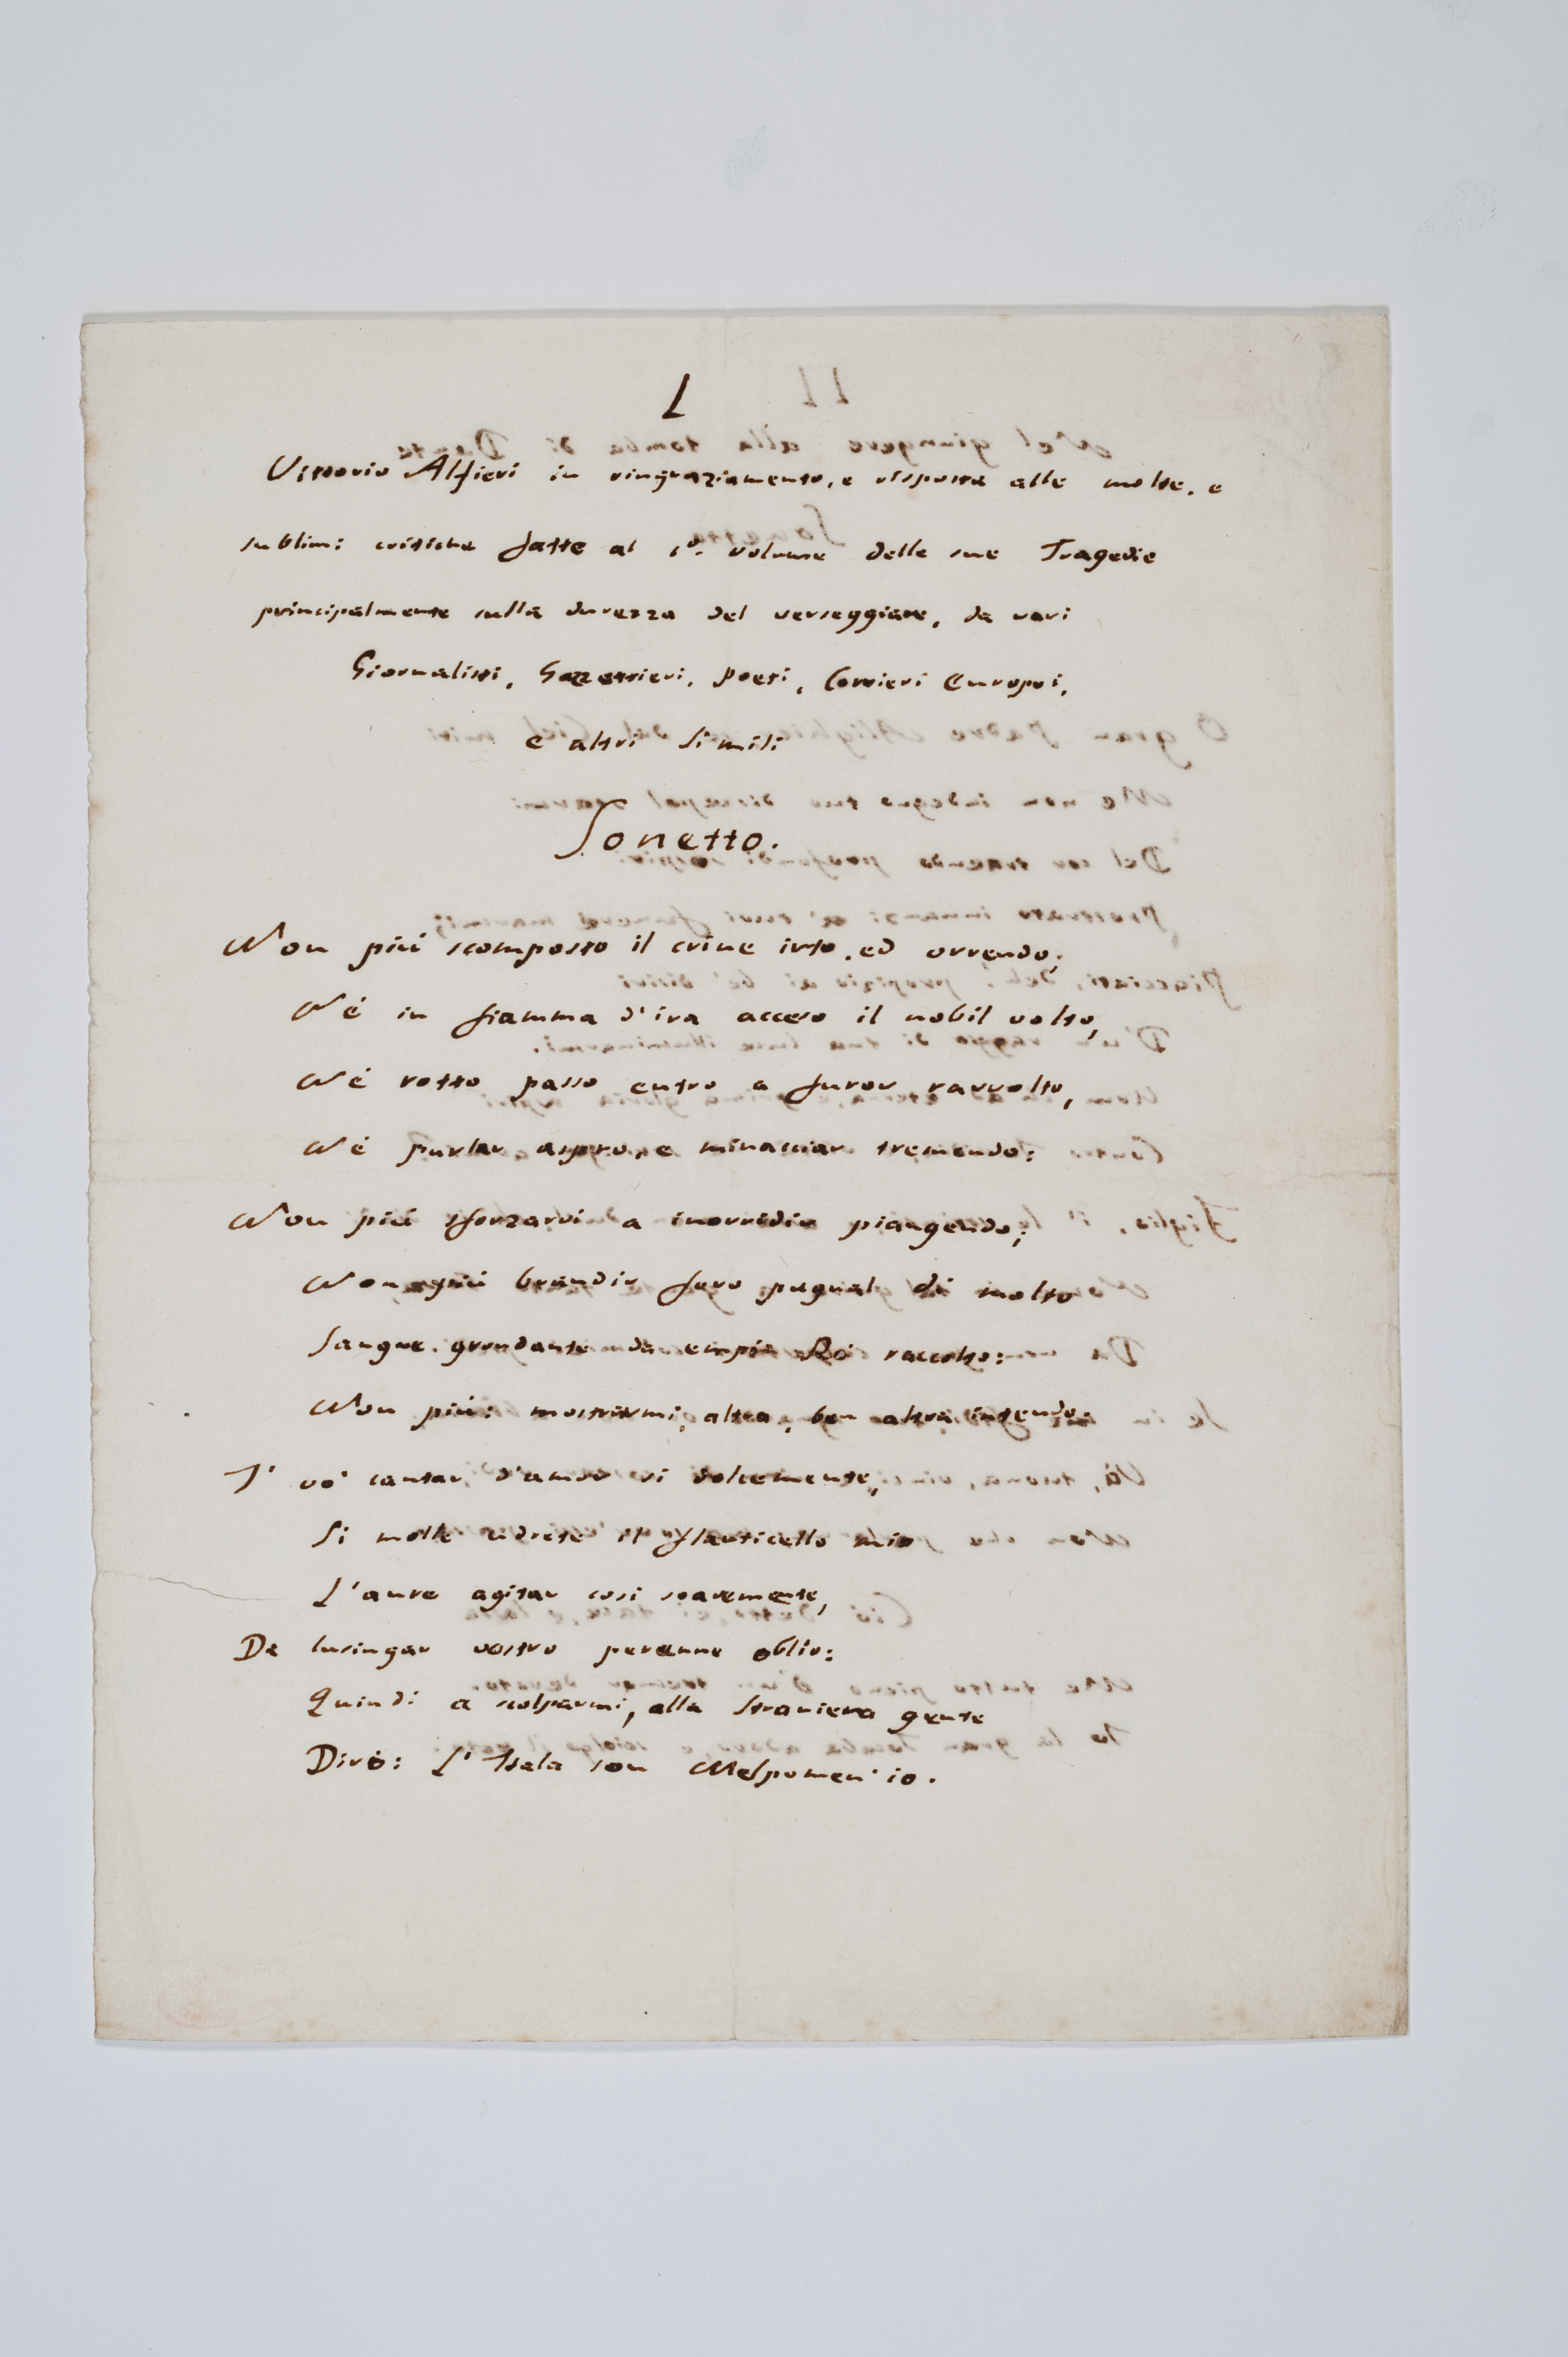 1
Vittorio Alfieri in ringraziamento, e risposta alle molte, e
sublimi critiche fatte al 1º. volume delle sue Tragedie
principalmente sulla durezza del verseggiare, da vari
Giornalisti, Gazzettieri, Poeti, Corrieri Europei,
e altri simili
Sonetto.
Non più scomposto il crine irto, ed orrendo;
Nè in fiamma d'ira acceso il nobil volto,
Nè rotto passo entro a furor ravvolto,
Nè parlar aspro, e minacciar tremendo:
Non più sforzarvi a inorridir piangendo;
Non più brandir fero pugnal di molto
Sangue grondante da empio Rè raccolto:
Non più: mostrarmi, altra, ben altra intendo.
I' vò cantar d'amor sì dolcemente,
Sì molle udrete il flauticello mio
L'aure agitar così soavemente,
Da lusingar vostro perenne oblio:
Quindi a scolparmi, alla straniera gente
Dirò: L'Itala son Melpomen' io.